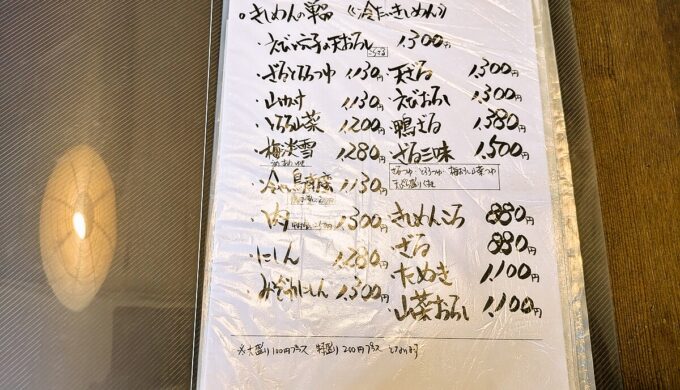 。きしめんの単品 《冷たいきしめん》
・えびと穴子の天おろし 1,300円
・ざるとろろつゆ 1,130円
・山かけ 1,130円
・とろろ山菜 1,200円
・梅淡雪 1,280円
・冷やし鳥南蛮 1,130円
・肉 1,300円
・にしん 1,280円
・みぞれにしん 1,300円
・天ざる 1,300円
・えびおろし 1,300円
・鴨ざる 1,380円
・ざる三味 1,500円
ざるつゆ・とろろつゆ・梅おろし山菜つゆ
・きしめんころ 880円
・ざる 880円
・たぬき 1,100円
・山菜おろし 1,100円
※大盛り100円プラス 特盛り200円プラス となります